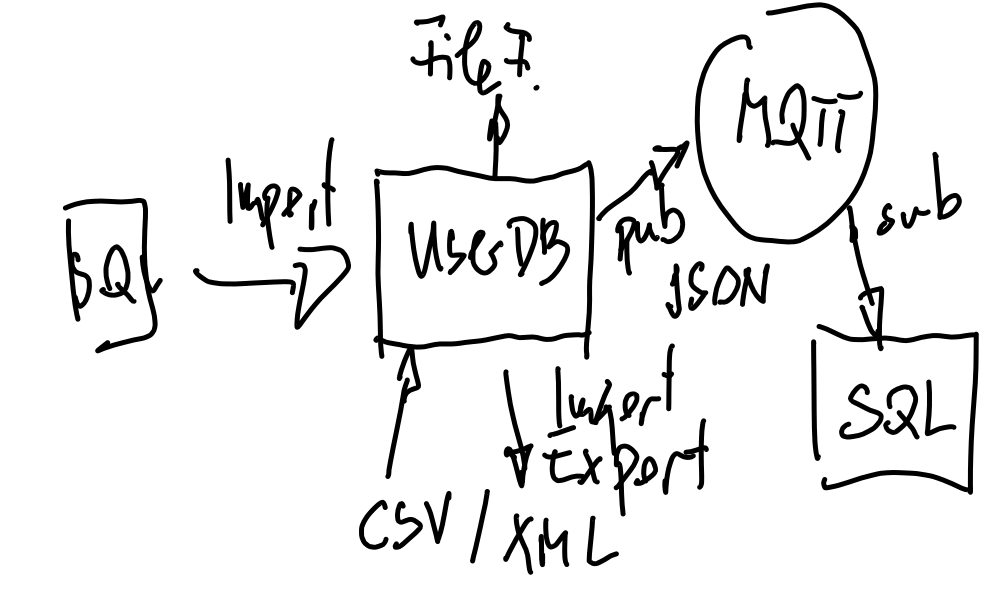 File I.
MQTT
Import
sub
UserDB
pub
SQL
JSON
SQL
Import
Export
CSV / XML